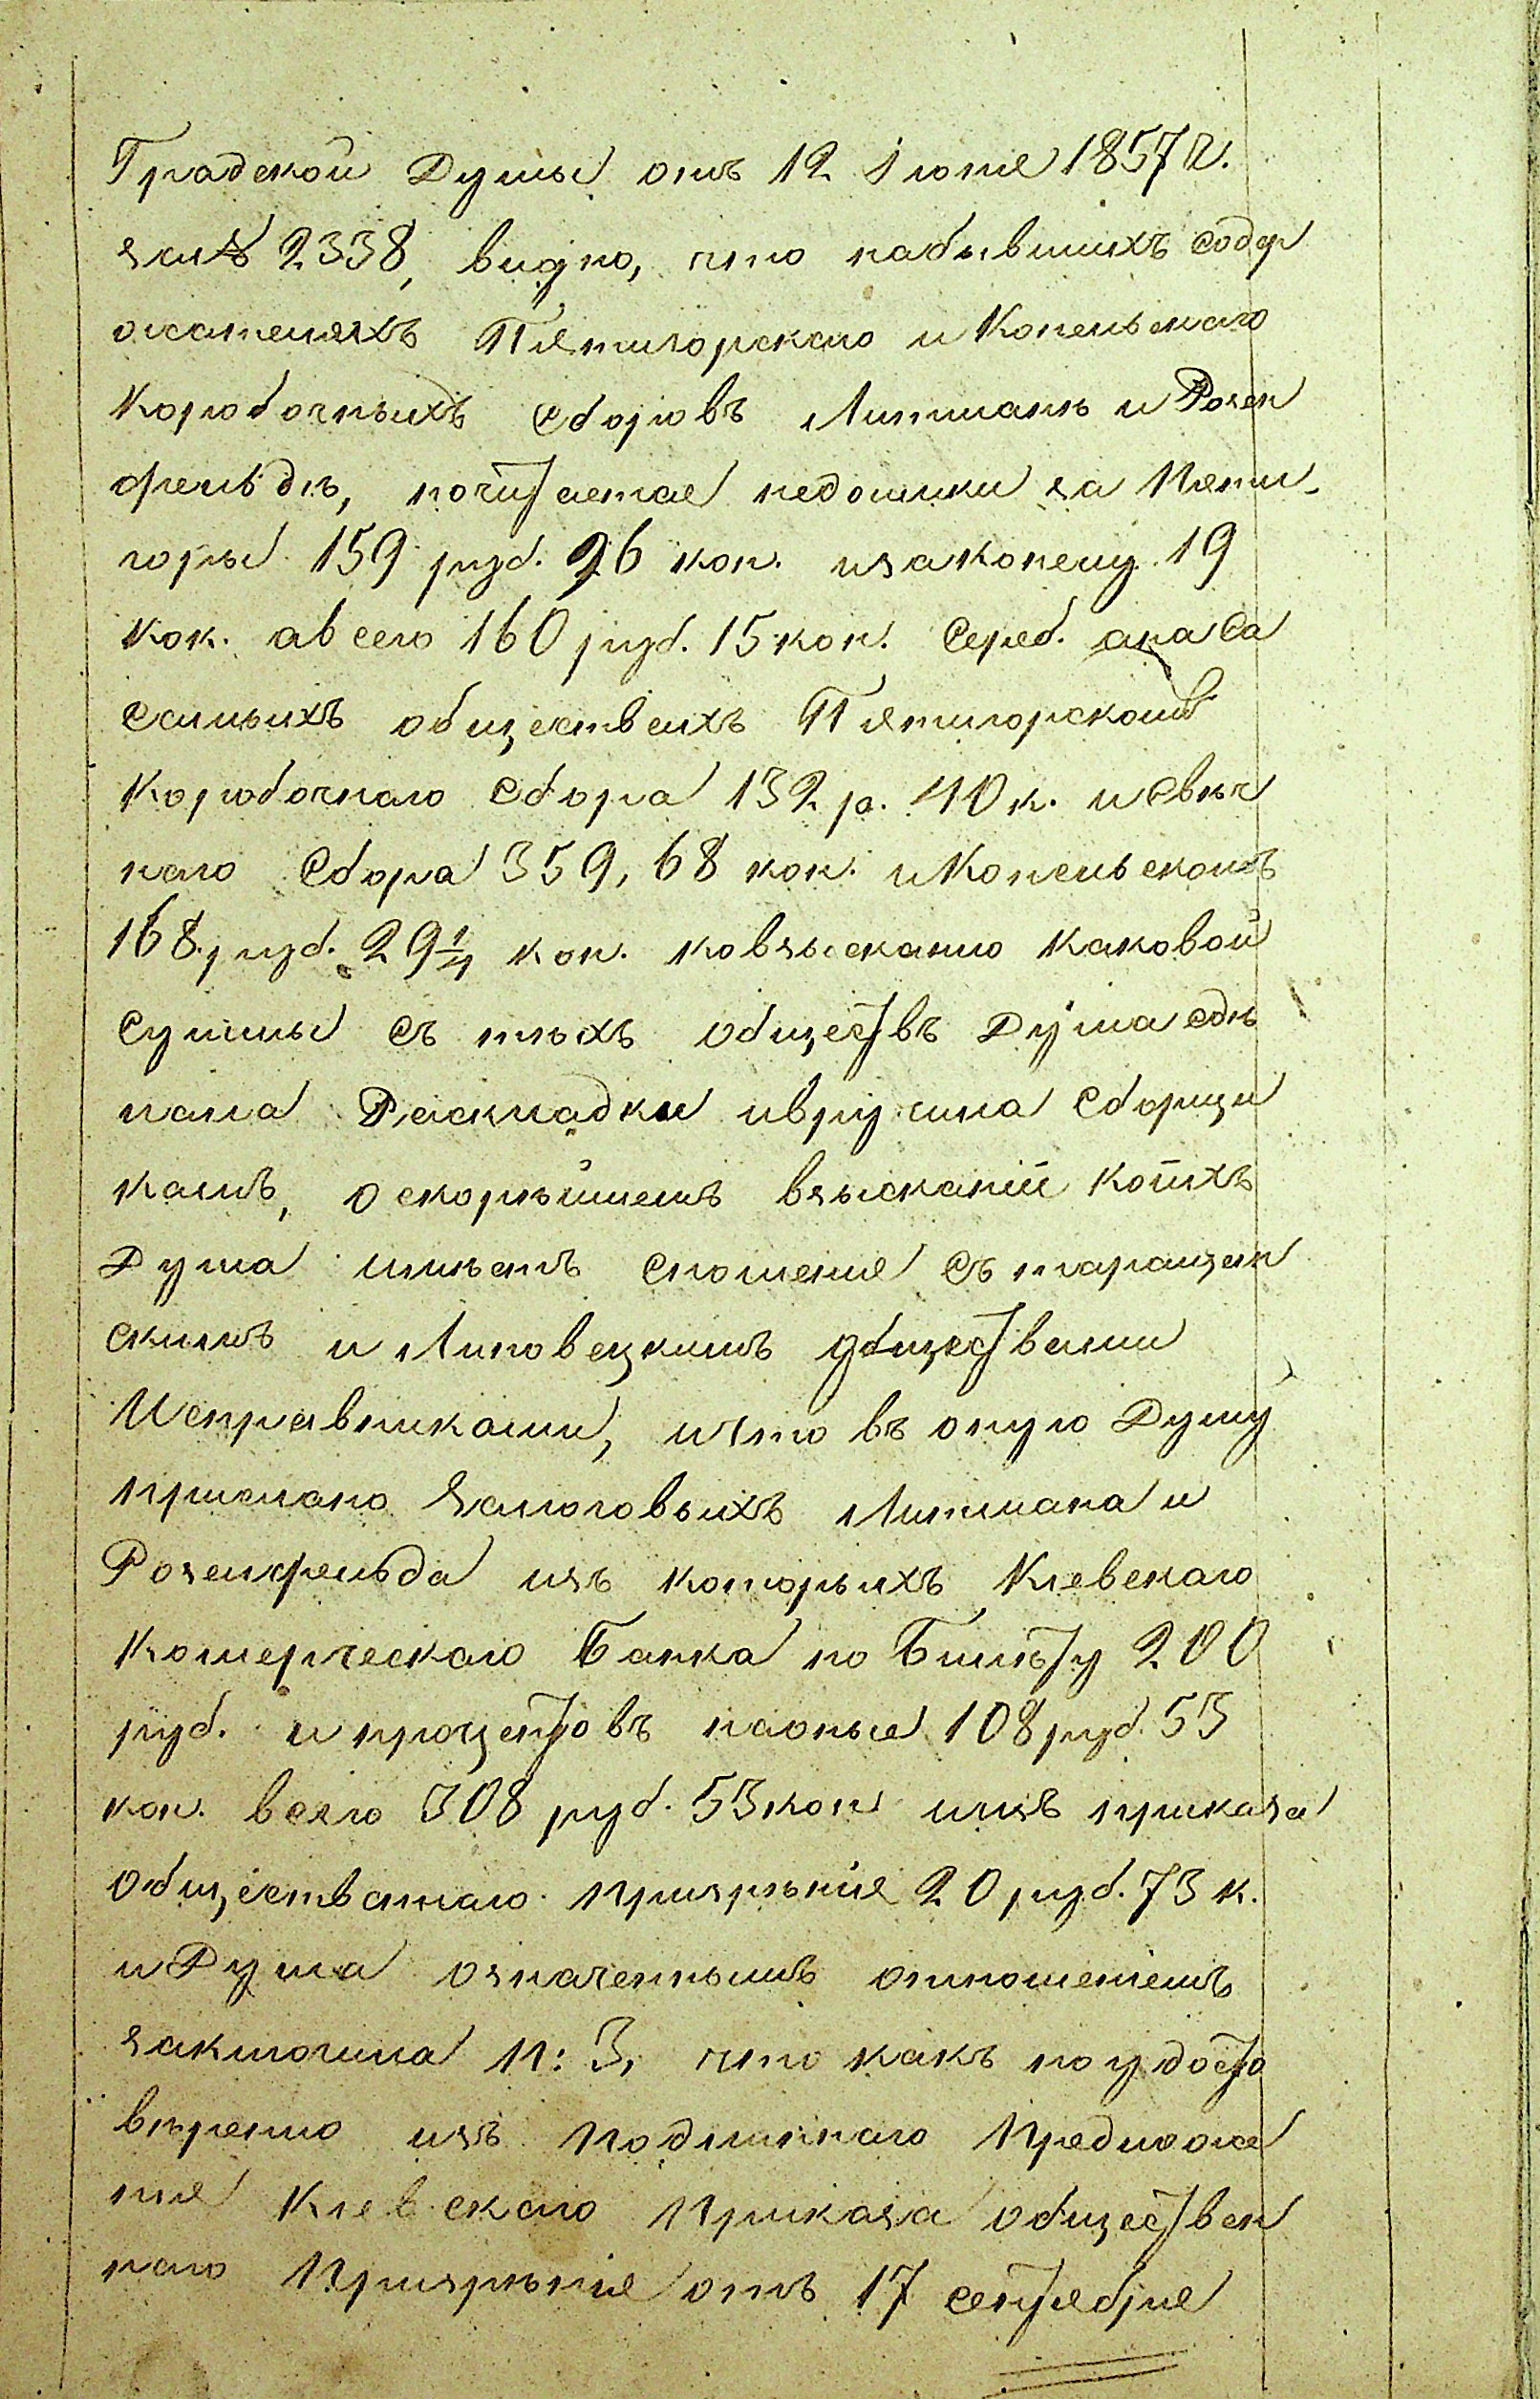 Градской Думы отъ 12 Іюня 1857 г.
за № 2338, видно, что набывшихъ содер
жателяхъ Пятигорскаго и Конельскаго
Коробочныхъ сборовъ Липманъ и Розен
фельдъ, почитается недоимки за Пяти-
горы 159 руб. 96 коп. изаконелу 19
коп. авсего 160 руб. 15 коп. Сереб. ана Са
самыхъ обществахъ Пятигорскомъ
Коробочнаго Сбора 132 р. 40 к. и Свѣч
наго Сбора 359, 68 коп. и Конельскомъ
168 руб. 29 1/4 коп. ковзысканію каковой
Суммы съ тѣхъ обществъ Дума сдѣ
лала Раскладки ивручила Сборщи
камъ, о скорѣйшемъ взысканіи котхъ
Дума имѣетъ сношеніе съ таращан
скимъ и Липовецкимъ обществами
Исправниками, ичто въ оную Думу
прислано Залоговыхъ Липмана и
Розенфельда изъ которыхъ Кіевскаго
Комерческаго Банка по Билѣту 200
руб. и процентовъ наоные 108 руб. 53
коп. всего 308 руб. 53 коп. иизъ приказа
общественнаго призрѣнія 20 руб. 73 к.
и Дума означеннымъ отношеніемъ
заключила п: 3, что какъ по удосто
вѣренію изъ подлиннаго Предложе
нія Кіевскаго Приказа обществен
наго Призрѣнія отъ 17 сентября